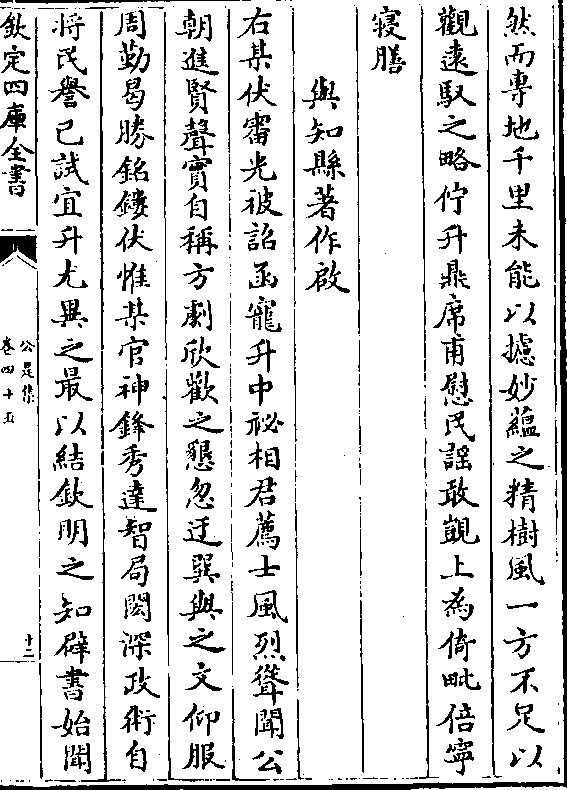 然而專地千里未能以攄妙蘊之精樹風一方不足以
觀遠馭之略佇升鼎席甫慰民謡敢覬上為倚毗倍寧
寢膳
與知縣著作啟
右某伏審光被詔函寵升中祕相君薦士風烈聳聞公
朝進賢聲實自稱方劇欣歡之懇忽迂巽與之文仰服
周勤曷勝銘鏤伏惟某官神鋒秀達智局閎深政術自
將民譽已試宜升尤異之最以結欽明之知辟書始聞
欽定四庫全書
公是集
卷四十五
十二